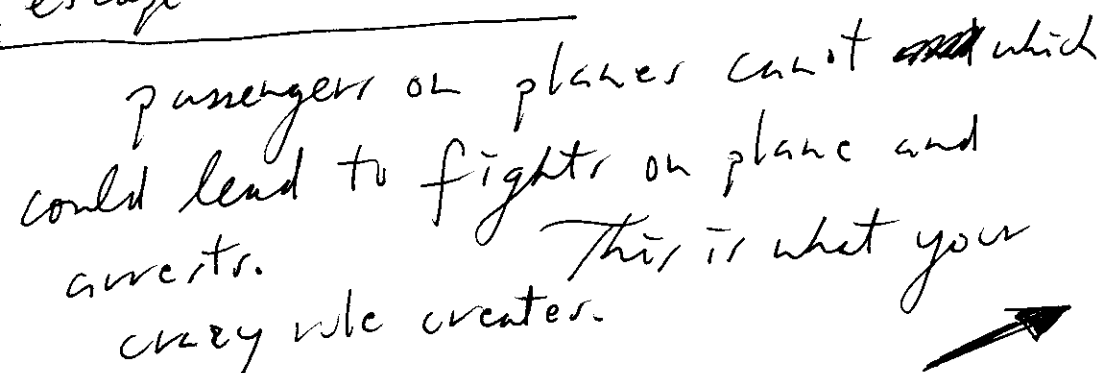 escape
passengers on planes cannot which
could lead to fights on plane and
arrests. This is what your
crazy rule creates.